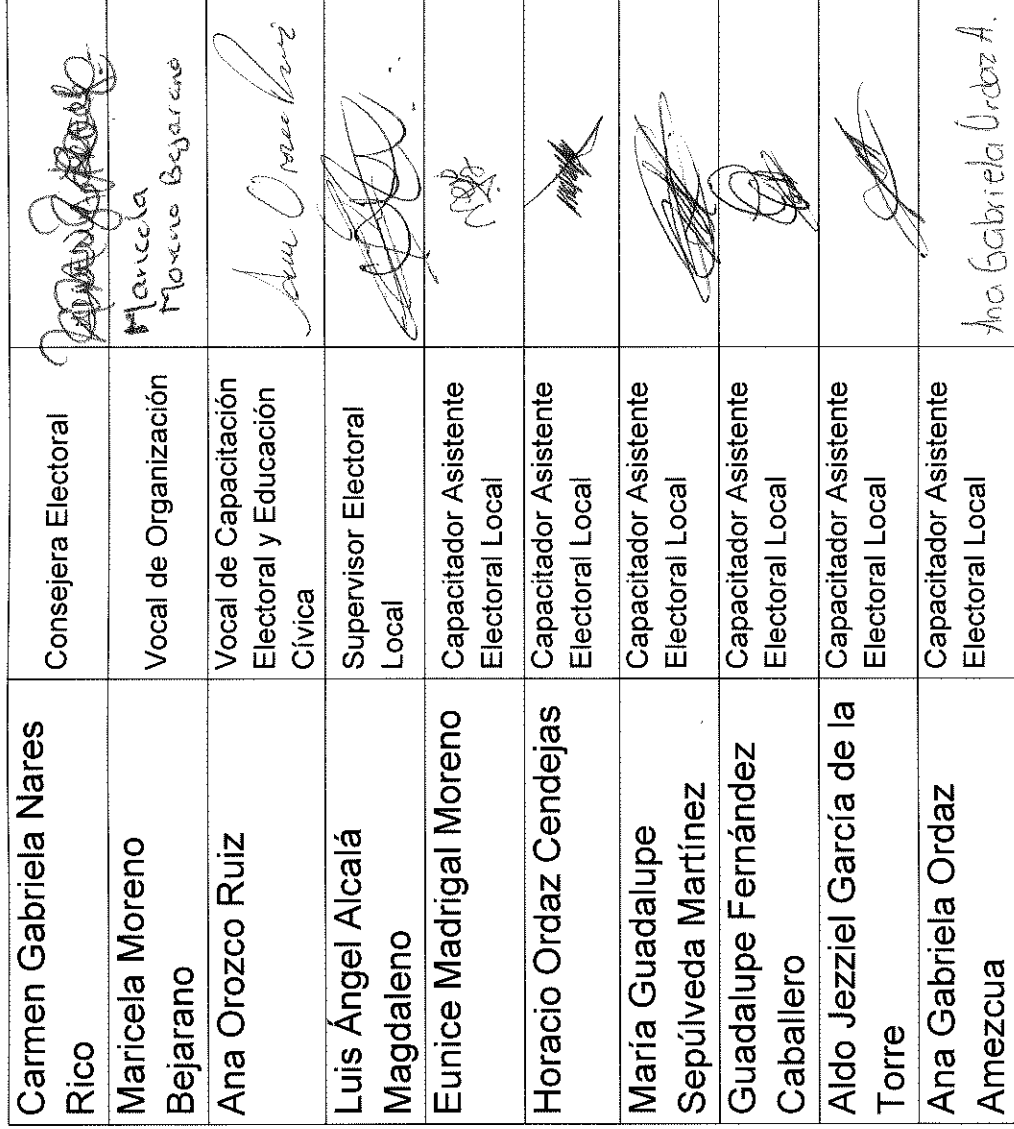 Carmen Gabriela Nares
Rico
Consejera Electoral
Maricela Moreno
Bejarano
Vocal de Organización
Maricela
Moreno Bejarano
Ana Orozco Ruiz
Vocal de Capacitación
Electoral y Educación
Cívica
Ana Orozco Ruiz
Luis Ángel Alcalá
Magdaleno
Supervisor Electoral
Local
Eunice Madrigal Moreno
Capacitador Asistente
Electoral Local
Horacio Ordaz Cendejas
Capacitador Asistente
Electoral Local
María Guadalupe
Sepúlveda Martínez
Capacitador Asistente
Electoral Local
Guadalupe Fernández
Caballero
Capacitador Asistente
Electoral Local
Aldo Jezziel García de la
Torre
Capacitador Asistente
Electoral Local
Ana Gabriela Ordaz
Amezcua
Capacitador Asistente
Electoral Local
Ana Gabriela Ordaz A.